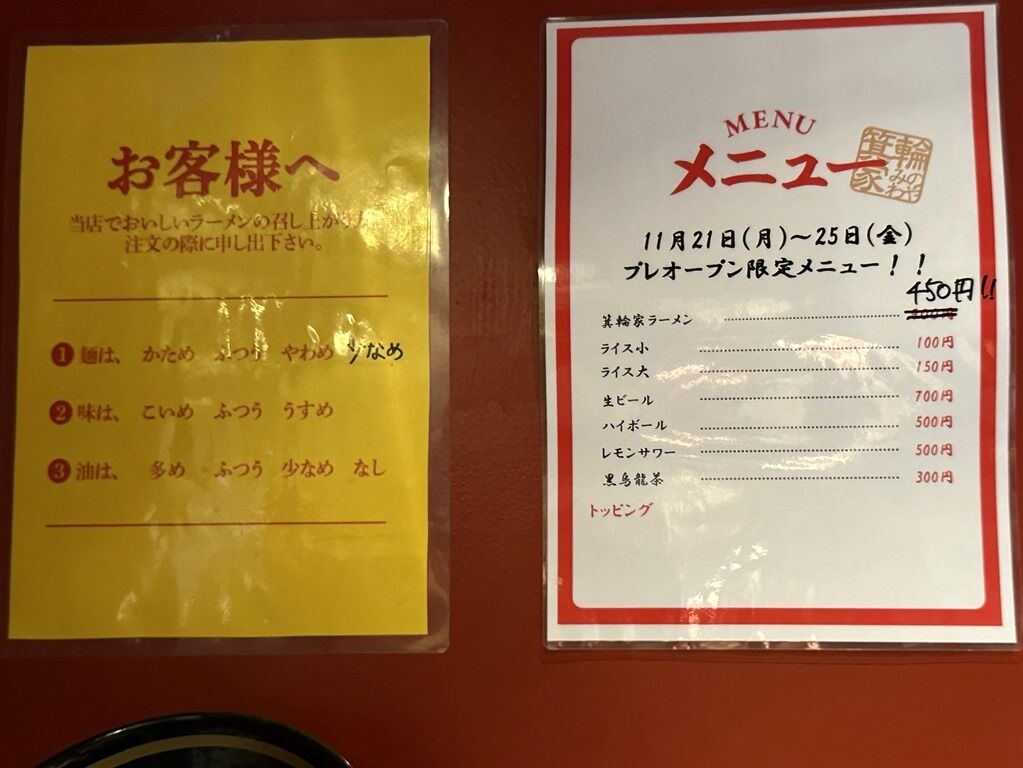 お客様へ
当店でおいしいラーメンの召し上がり方
注文の際に申し出下さい。
1 麺は、 かため ふつう やわめ 少なめ
2 味は、 こいめ ふつう うすめ
3 油は、 多め ふつう 少なめ なし
MENU
メニュー
箕輪家 みのわや
11月21日(月)～25日(金)
プレオープン限定メニュー！！
450円!!
箕輪家ラーメン
ライス小 100円
ライス大 150円
生ビール 700円
ハイボール 500円
レモンサワー 500円
黒烏龍茶 300円
トッピング